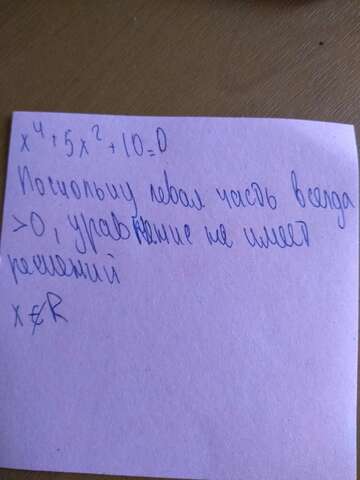 x⁴+5x²+10=0
Поскольку левая часть всегда
>0, уравнение не имеет
решений
x∉R